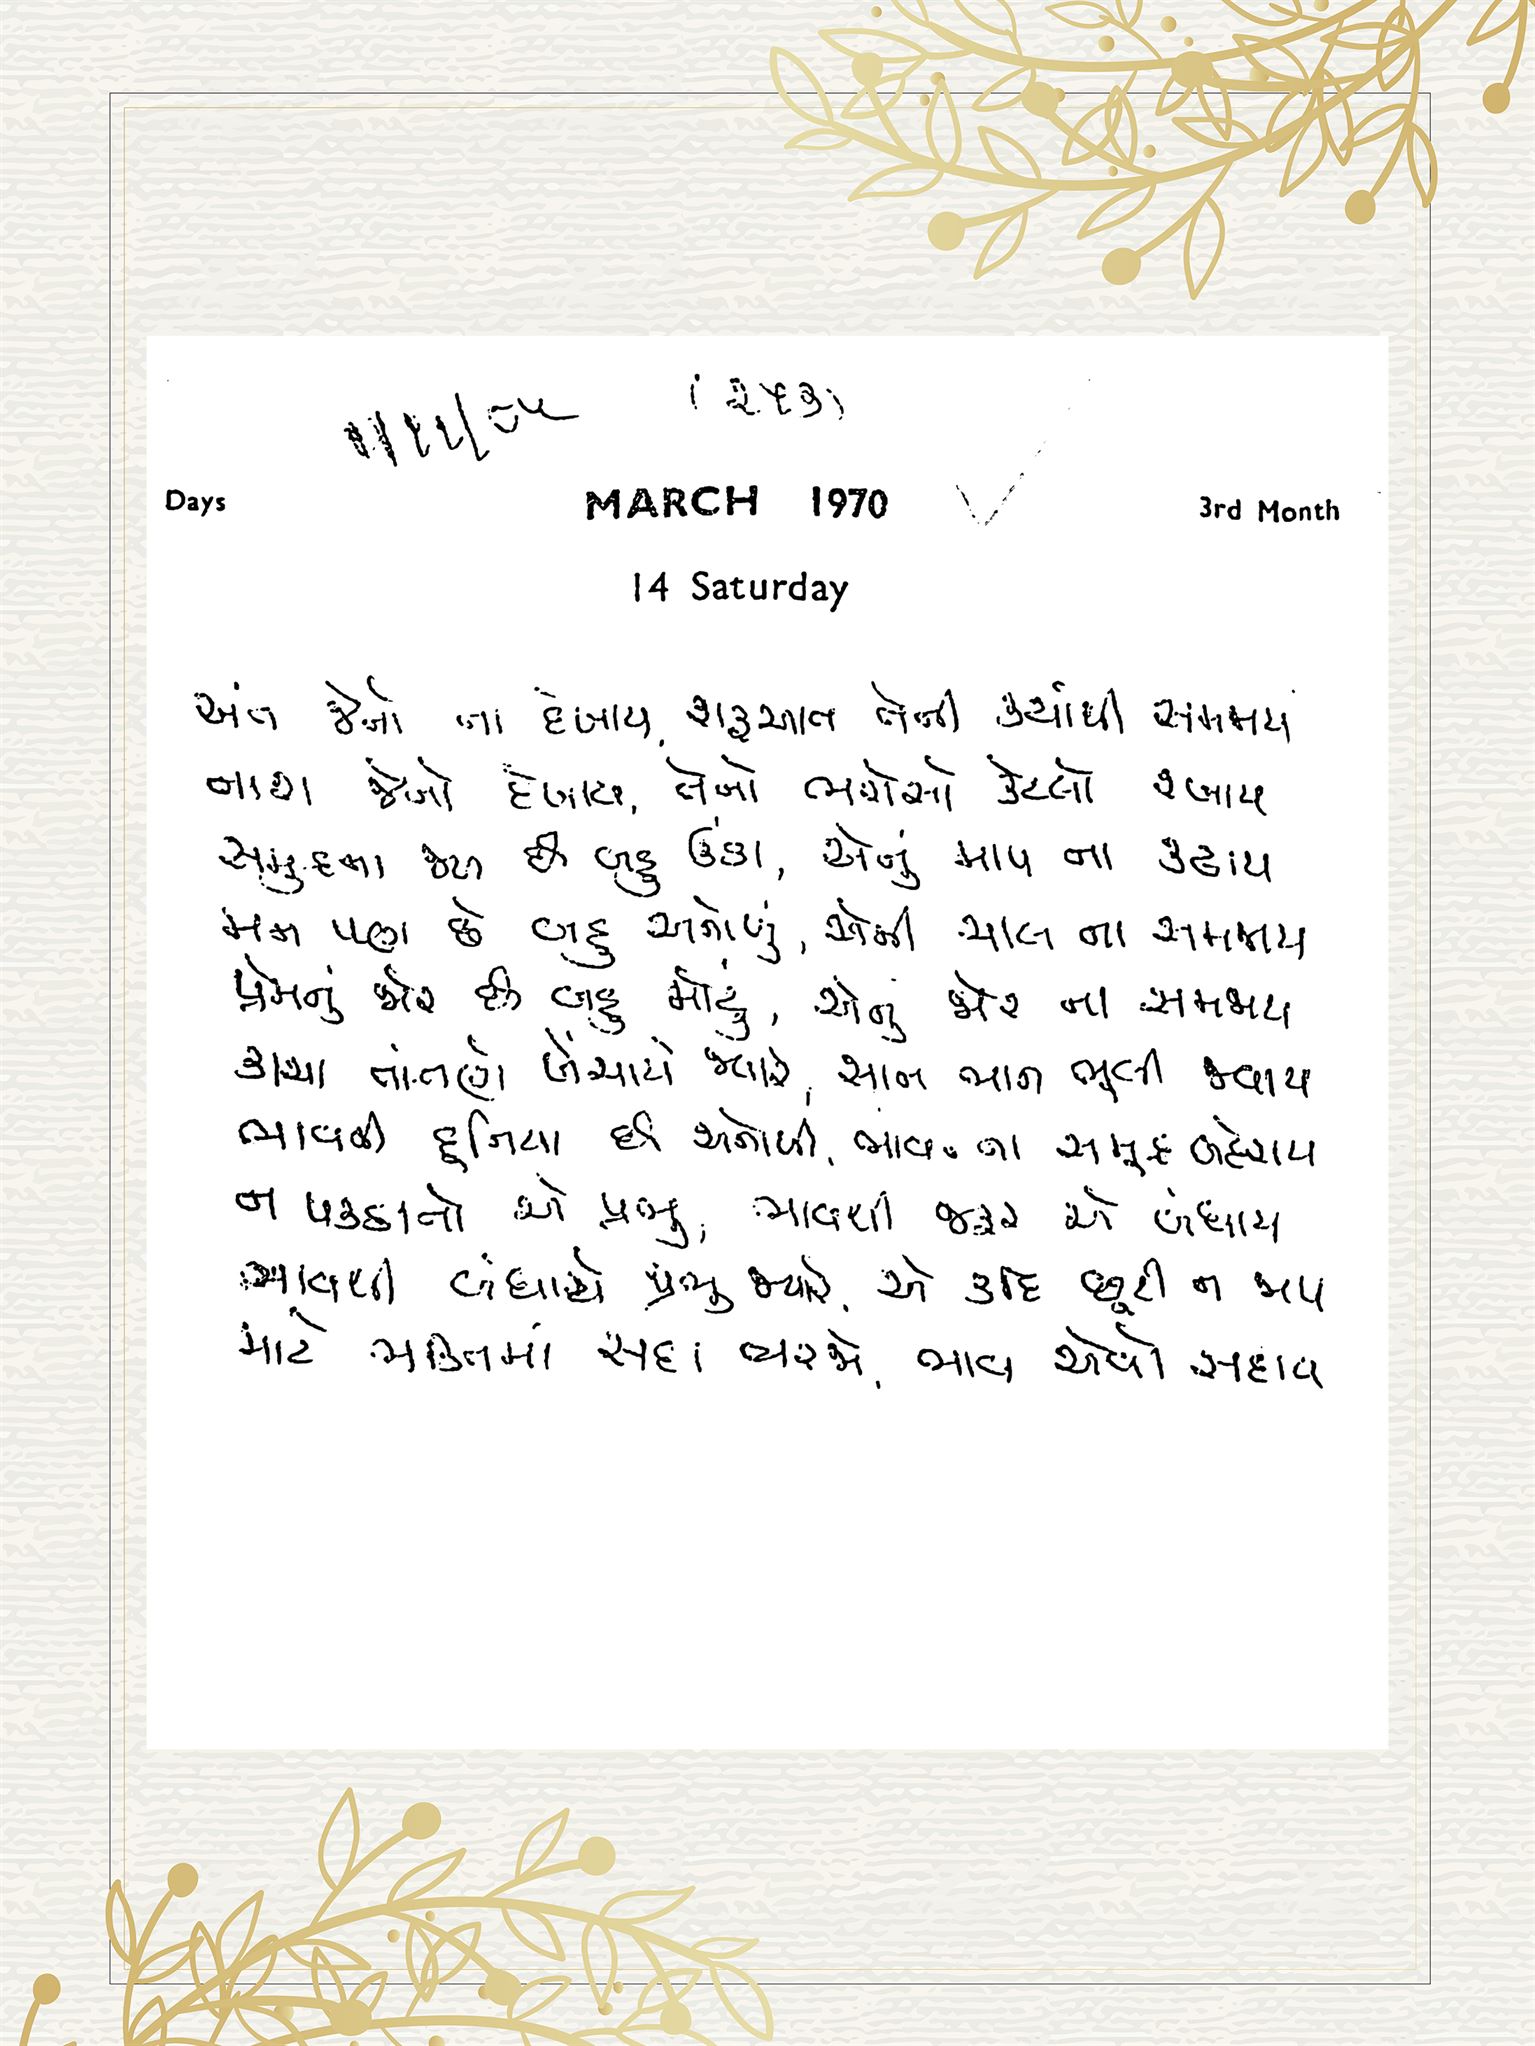 ૧૧/૮૫ (૨૫૩)
Days MARCH 1970 3rd Month
14 Saturday
અંત જેનો ના દેખાય, શરૂઆત તેની ક્યાંથી સમજાય
નાશ જેનો દેખાય, તેનો ભરોસો કેટલો રખાય
સમુદ્રના જળ છે બહુ ઉંડા, એનું માપ ના કઢાય
મન પણ છે બહુ અનોખું, એની ચાલ ના સમજાય
પ્રેમનું જોર છે બહુ મોટું, એનું જોર ના સમજાય
કાચા તાંતણે ખેંચાયે જ્યારે, સાન ભાન ભૂલી જવાય
ભાવની દૂનિયા છે અનોખી, ભાવ ના સમુદ્ર લહેરાય
ન પકડાતો એ પ્રભુ, ભાવથી જરૂર એ બંધાય
ભાવથી બંધાયે પ્રભુ જ્યારે, એ કદિ છૂટી ન જાય
માટે ભક્તિમાં સદા ભરજો, ભાવ એવો સદાય